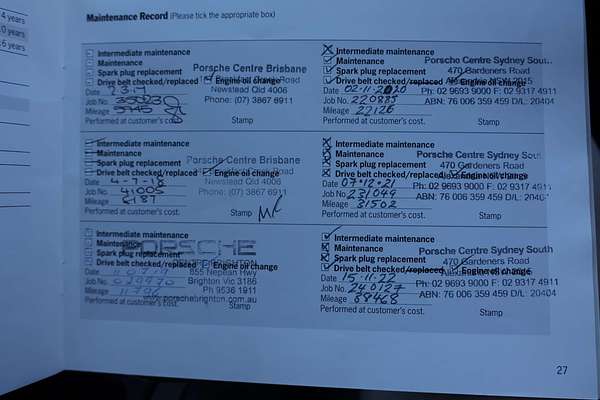 4 years
0 years
6 years
Maintenance Record (Please tick the appropriate box)
Intermediate maintenance
Maintenance
Spark plug replacement
Drive belt checked/replaced Engine oil change
Porsche Centre Brisbane
Newstead Qld 4006
Phone: (07) 3867 6911
Date
Job No.
Mileage
Performed at customer's cost.
Stamp
Intermediate maintenance
Maintenance
Spark plug replacement
Drive belt checked/replaced Engine oil change
Porsche Centre Brisbane
Newstead Qld 4006
Phone: (07) 3867 6911
Date 4-7-18
Job No. 41005
Mileage 8187
Performed at customer's cost.
Stamp
Intermediate maintenance
Maintenance
Spark plug replacement
Drive belt checked/replaced Engine oil change
PORSCHE
855 Nepean Hwy
Brighton Vic 3186
Ph 9536 1911
www.porschebrighton.com.au
Date
Job No.
Mileage
Performed at customer's cost.
Stamp
Intermediate maintenance
Maintenance
Spark plug replacement
Drive belt checked/replaced Engine oil change
Porsche Centre Sydney Sout
470 Gardeners Road
Ph: 02 9693 9000 F: 02 9317 4911
ABN: 76 006 359 459 D/L: 20404
Date 02-11-2020
Job No. 220885
Mileage 22126
Performed at customer's cost.
Stamp
Intermediate maintenance
Maintenance
Spark plug replacement
Drive belt checked/replaced Engine oil change
Porsche Centre Sydney Sout
470 Gardeners Road
Ph: 02 9693 9000 F: 02 9317 4911
ABN: 76 006 359 459 D/L: 2040
Date 07-12-21
Job No. 231049
Mileage 31502
Performed at customer's cost.
Stamp
Intermediate maintenance
Maintenance
Spark plug replacement
Drive belt checked/replaced Engine oil change
Porsche Centre Sydney South
470 Gardeners Road
Ph: 02 9693 9000 F: 02 9317 4911
ABN: 76 006 359 459 D/L: 20404
Date 15-11-22
Job No. 240127
Mileage 38468
Performed at customer's cost.
Stamp
27